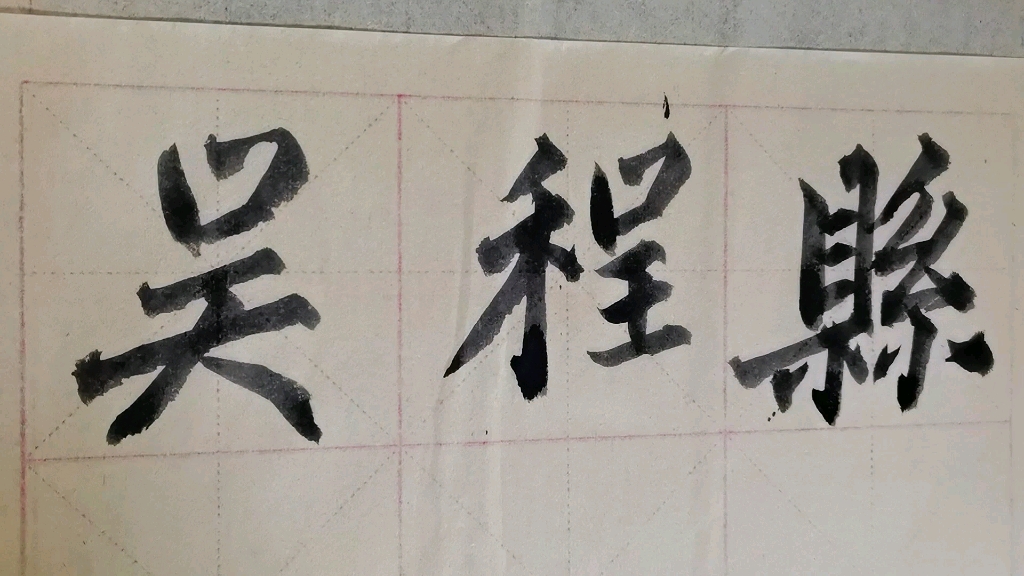 吴程縣